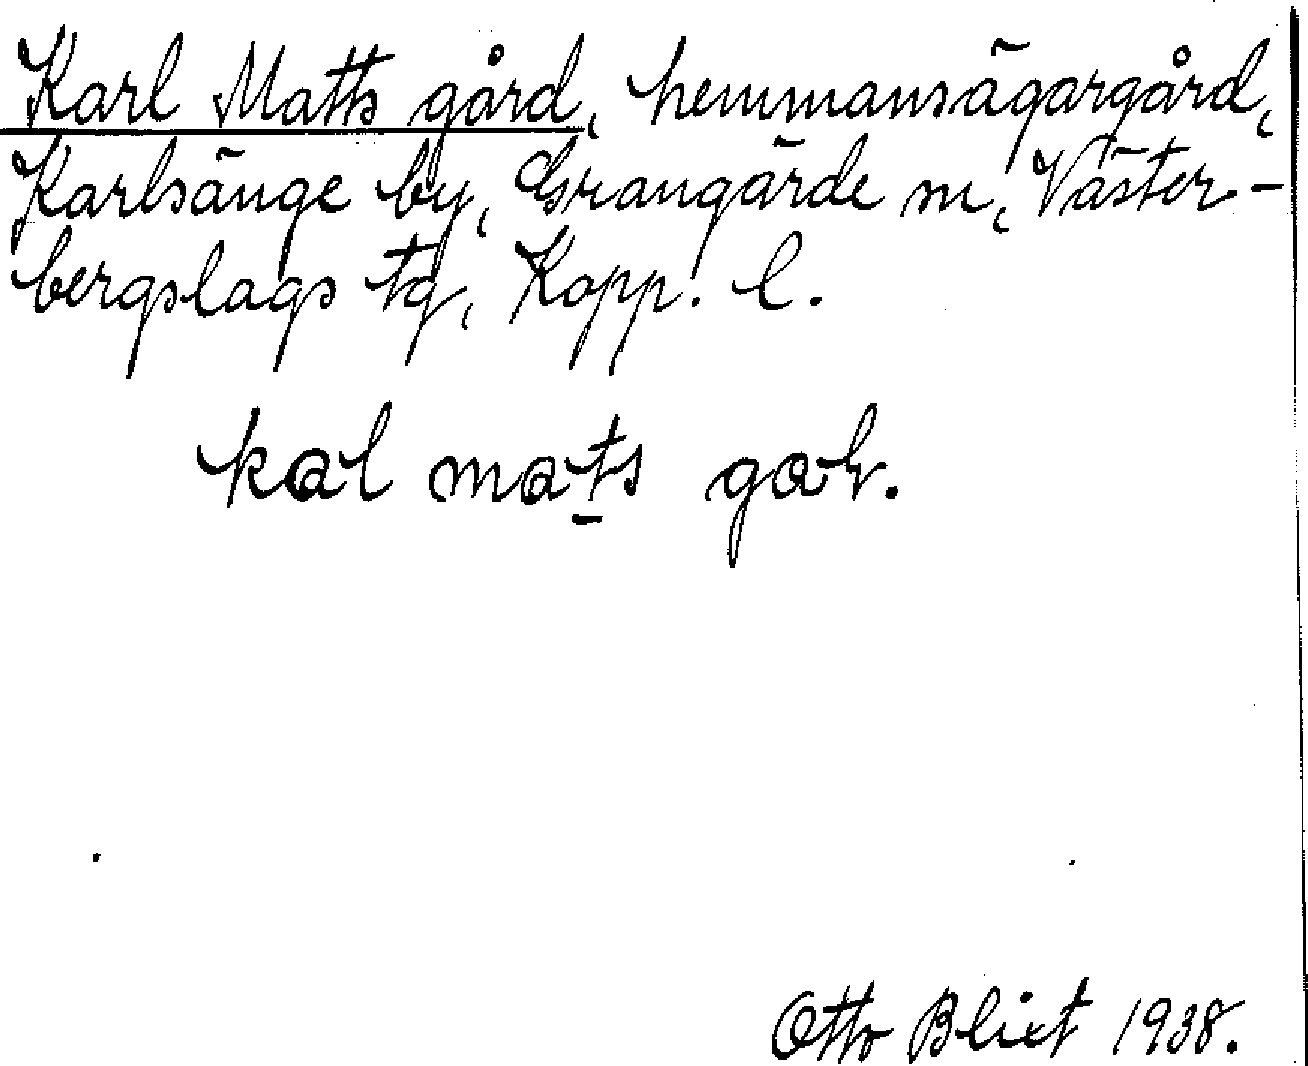 Karl Matts gård, hemmansägargård,
Karlsänge by, Grangärde sn, Väster-
bergslags tg, Kopp. l.
kal mats
Otto Blixt 1938.